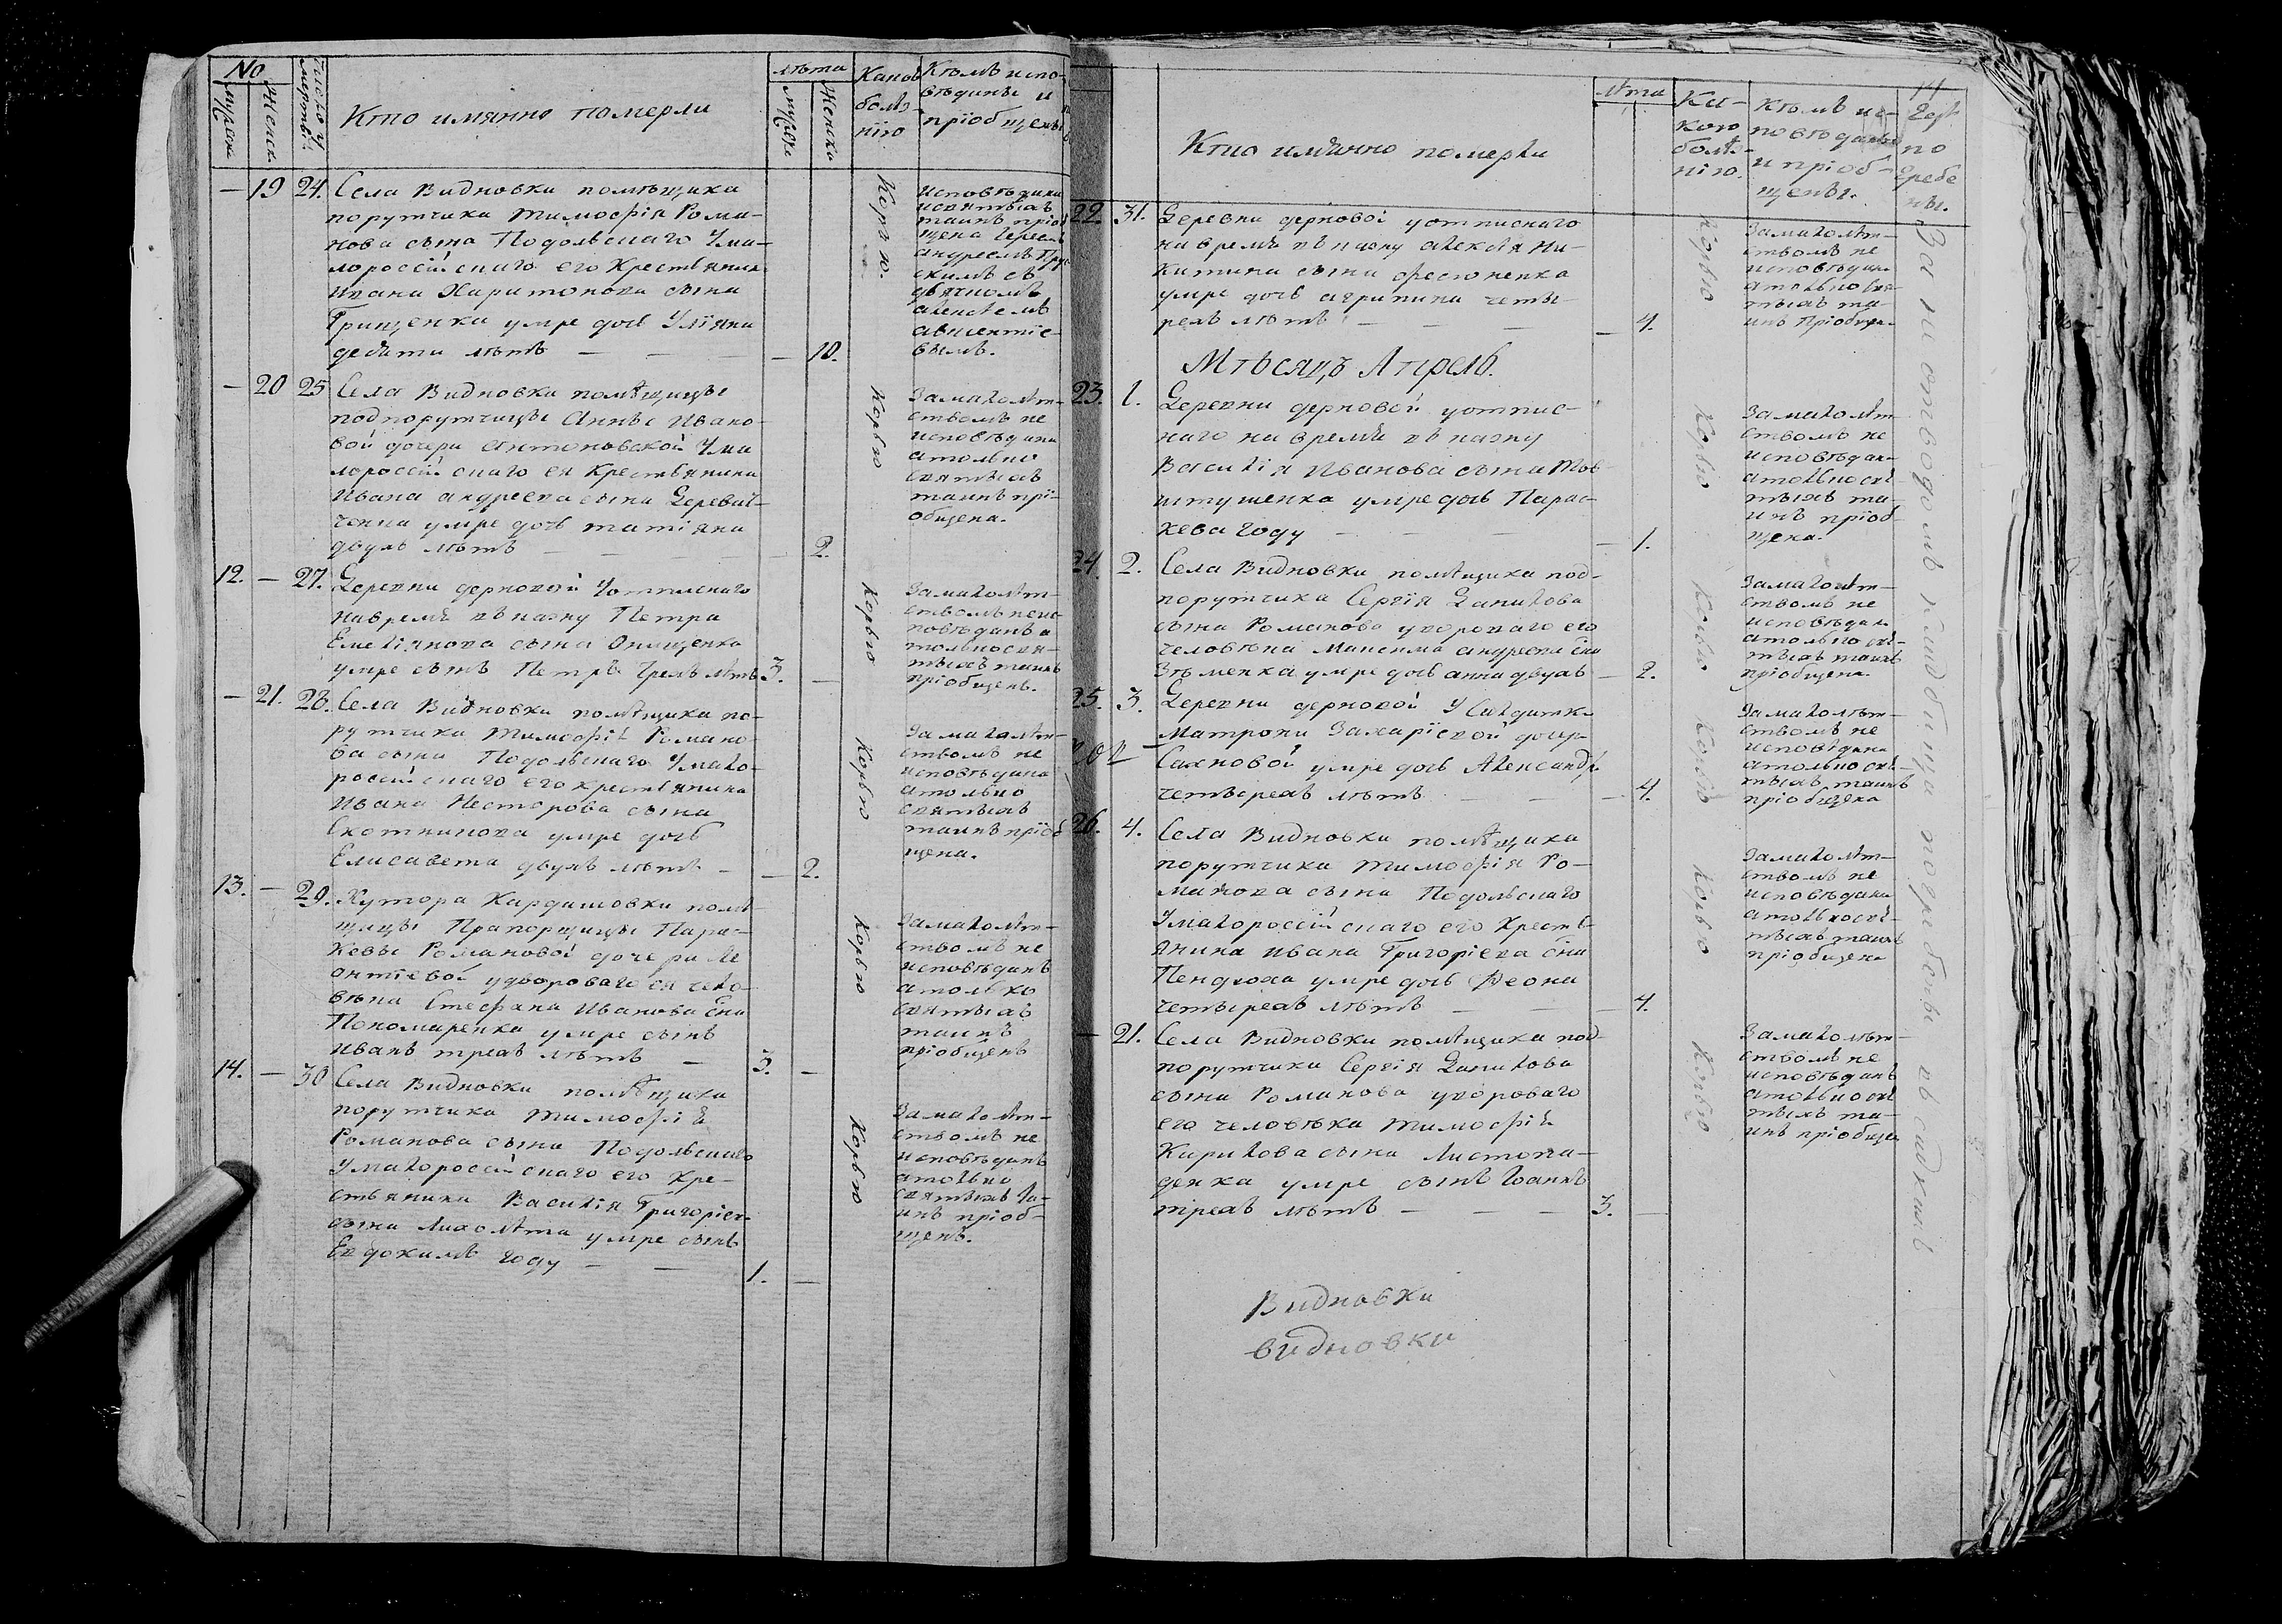 No
мужск.
Женск.
Кто имянно померли
лѣта
мужска
Женска
Какою
болѣз-
нїю
Кѣмъ испо-
вѣданы и
прїобщены
19 24. Села Видновки помѣщика
порутчика Тимофѣя Рома-
нова сына Подольскаго у ма-
лороссійскаго его Крестьянина
Ивана Харитонова сына
Грищенка умре дочь Улїяна
десяти лѣтъ — — — 10.
Корью.
исповѣдана
и святыхъ
таинъ прїоб
щена Іереемъ
Андреемъ
съ
дьячкомъ
Алексѣемъ
20 25 Села Видновки помѣщицы
подпорутчицы Анны Ивано-
вой дочери Антоновской у ма
лороссійскаго ея Крестьянина
Ивана Андреева сына Деревян-
ченка умре дочь Татїяна
двухъ лѣтъ — — — 2.
Корью
За малолѣт-
ствомъ не
исповѣдана
а только
святыхъ
таинъ прї-
общена.
12. — 27. Деревни дерновой
на время въ Петра
Емелїянова сына Онищенка
умре сынъ Петръ трехъ лѣтъ 3. —
Корью
За малолѣт-
ствомъ не ис
повѣданъ а
только свя-
тыхъ таинъ
прїобщенъ.
— 21. 28. Села Видновки помѣщика по-
рутчика Тимофѣя Романо-
ва сына Подольскаго у мало-
россійскаго его крестьянина
Ивана Несторова сына
Скотникова умре дочь
Елисавета двухъ лѣтъ — — 2.
Корью
За малолѣт-
ствомъ не
исповѣдана
а только
святыхъ
таинъ прїоб
щена.
13. — 29. Хутора Кардашовки помѣ
щицы Прапорщицы Парас-
кевы Романовой дочери Ле
онтїевой у двороваго ея чело-
вѣка Стефана Иванова Сна
Пономаренка умре сынъ
Иванъ трехъ лѣтъ — 3. —
Корью
За малолѣт-
ствомъ не
исповѣданъ
а только
святыхъ
таинъ
прїобщенъ
14. — 30 Села Видновки помѣщика
порутчика Тимофѣя
Романова сына Подольскаго
у малороссійскаго его Кре-
стьянина Василїя Григорїев
сына Лихолѣта умре сынъ
Евдокимъ году — — 1. —
Корью
За малолѣт-
ствомъ не
исповѣданъ
а только
святыхъ та-
инъ прїоб-
щенъ.
14
Кто имянно померли
лѣта
Ка-
кою
болѣ-
нїю.
Кѣмъ ис-
повѣданы
и прїоб-
щены.
Гдѣ
по
гребе
ны.
22. 31. Деревни дерновой
на время въ Алексѣя Ни-
китина сына Фесюненка
умре дочь Агрипина четы-
рехъ лѣтъ — — — — 4.
Корью
За малолѣт-
ствомъ не
исповѣдана
а только свя-
тыхъ та-
инъ прїобщен
Мѣсяцъ Апрель.
23. 1. Деревни дерновой
на время въ
Василїя Иванова сына Тов-
штушенка умре дочь Парас-
кева году — — — — 1.
Корью
За малолѣт-
ствомъ не
исповѣдан-
а только свя
тыхъ та-
инъ прїоб-
щена.
24. 2. Села Видновки помѣщика под-
порутчика Сергїя Данилова
сына Романова у двороваго его
человѣка Максима Андреева сна
умре дочь Анна двухъ — 2.
Корью
За малолѣт-
ствомъ не
исповѣдан
а только свя-
тыхъ таинъ
прїобщена.
25. 3. Деревни дерновой у Солдатки
Матроны Захарїевой дочери
Сахновой умре дочь Александра
четырехъ лѣтъ — — — 4.
Корью
За малолѣт-
ствомъ не
исповѣдана
а только свя-
тыхъ таинъ
прїобщена
26. 4. Села Видновки помѣщика
порутчика Тимофѣя Ро-
манова сына Подольскаго
у малороссійскаго его Кресть-
янина Ивана Григорїева сна
умре дочь Феона
четырехъ лѣтъ — — — 4.
Корью
За малолѣт-
ствомъ не
исповѣдана
а только свя-
тыхъ таинъ
прїобщена
— 21. Села Видновки помѣщика под-
порутчика Сергїя Данилова
сына Романова у двороваго
его человѣка Тимофѣя
Кирилова сына Листопа-
денка умре сынъ Іоаннъ
трехъ лѣтъ — — — 3. —
Корью
За малолѣт-
ствомъ не
исповѣданъ
а только свя
тыхъ та-
инъ прїобщен
На отводномъ кладбищѣ погребены въ Видновкѣ
Видновки
видновки